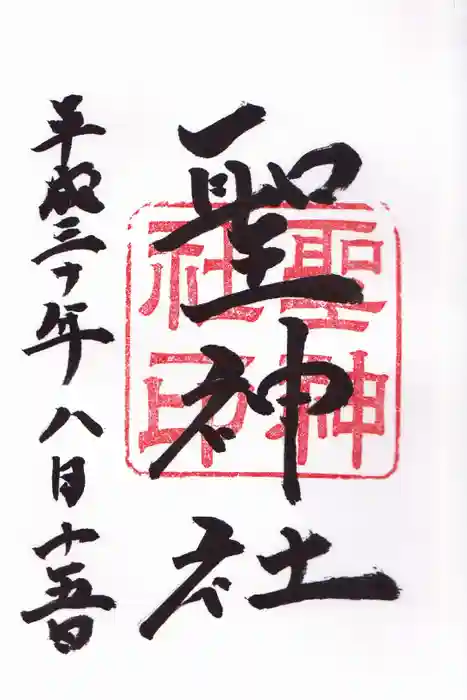 聖神社
平成三十年八月十五日
聖神
社印